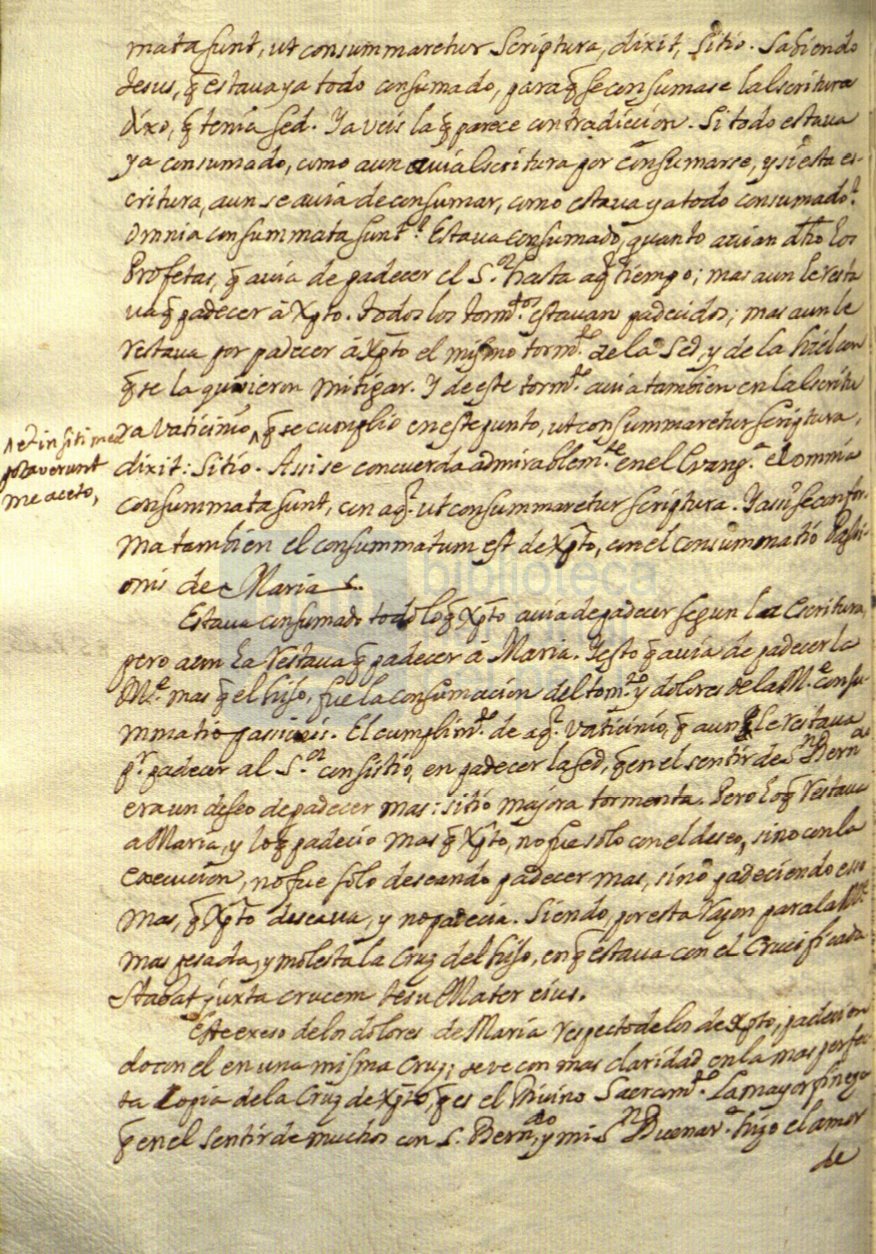 mata sunt, ut consummaretur Scriptura, dixit, Sitio. Sabiendo
Jesus, q̃ estava ya todo consumado, para q̃ se consumase la Escritura
dixo, q̃ tenia sed. Ya veis la q̃ parece contradiccion. Si todo estava
ya consumado, como aun avia Escritura por consumarse, y si esta es-
critura, aun se avia de consumar, como estava ya todo consumado?
Omnia consummata sunt? Estava consumado, quanto avian dho los
Profetas, q̃ avia de padecer el S.or hasta aq̃l tiempo; mas aun le resta
va q̃ padecer à Xpto. Todos los torm.tos estavan padecidos; mas aun le
restava por padecer à Xpto el mismo torm.to de la Sed, y de la hiel con
q̃ se la quisieron mitigar. Y de este torm.to avia tambien en la Escritu
ra Vaticinio, ^ q̃ se cumplio en este punto, ut consummaretur Scriptura,
^ et in siti mea
potaverunt
me aceto,
dixit: Sitio. Assi se concuerda admirablem.te en el Evang.o el omnia
consummata sunt, con aq̃l. ut consummaretur scriptura. Y assi se confor-
ma tambien el consummatum est de Xpto, con el consummatió Passi-
onis de Maria
biblioteca
Estava consumado todo lo q̃ Xpto avia de padecer segun la Escritura,
pero aun la restava q̃ padecer à Maria. Y esto q̃ avia de padecer la
M.e mas q̃ el hijo, fue la consumacion del tom.to y dolores de la M.e consu-
mmatio passionis. El cumplim.to de aq̃l. vaticinio, q̃ aun le restava
p.r padecer al S.or consistio, en padecer la sed, q̃ en el sentir de S.n Bern.do
era un deseo de padecer mas: sitió majora tormenta. Pero lo q̃ restava
a Maria, y lo q̃ padecio mas q̃ Xpto, no fue solo con el deseo, sino con la
execucion, no fue solo deseando padecer mas, sino padeciendo esso
mas, q̃ Xpto deseava, y no padecia. Siendo, por esta razon para la M.e
mas pesada, y molesta la Cruz del hijo, en q̃ estava con el Crucificada
Stabat juxta crucem Jesu Mater eius.
Este exeso de los dolores de Maria respecto de los de Xpto, padecien
do con el en una misma Cruz; se ve con mas claridad en la mas perfec-
ta Copia de la Cruz de Xpto, q̃ es el Divino Sacram.to. La mayor fineza
q̃ en el sentir de muchos con S. Bern.do y mi S.n Buenav.a hizo el amor
de